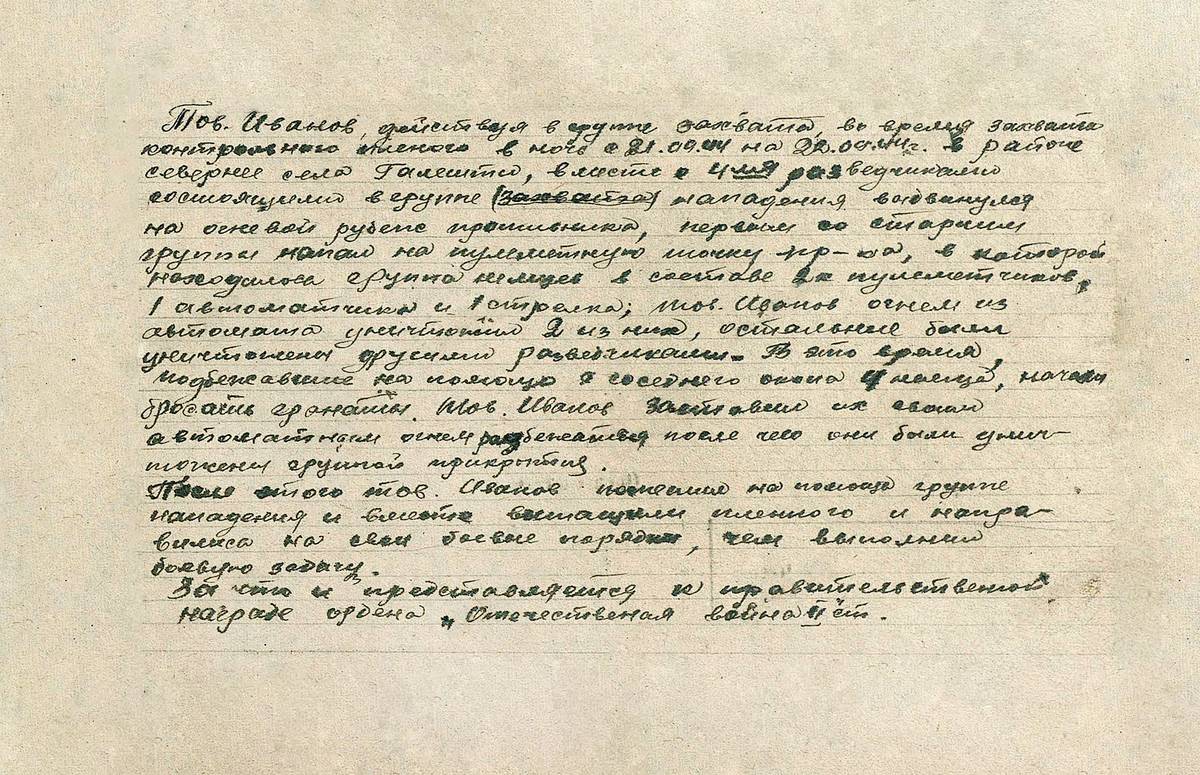 Тов. Иванов, действуя в группе захвата, во время захвата
контрольного пленого в ночь с 21.09.44 на 22.09.44г. в районе
севернее села Галешти, вместе с 4мя разведчиками
состоящими в группе (захвата) нападения выдвинулся
на огневой рубеж противника, первым со старшим
группы напал на пулеметную точку пр-ка, в которой
находилось группа немцев в составе 2х пулеметчиков,
1 автоматчика и 1 стрелка; тов. Иванов огнем из
автомата уничтожил 2 из них, остальные были
уничтожены другими разведчиками. В это время,
подбежавшие на помощь с соседнего окопа 4 немца, начали
бросать гранаты. Тов. Иванов заставил их своим
автоматным огнем разбежаться после чего они были унич-
тожены группой прикрытия.
После этого тов. Иванов поспешил на помощь группе
нападения и вместе вытащили пленного и напра-
вились на свои боевые порядки, чем выполнил
боевую задачу.
За что и представляется к правительственой
награде ордена „Отечественая война II ст.